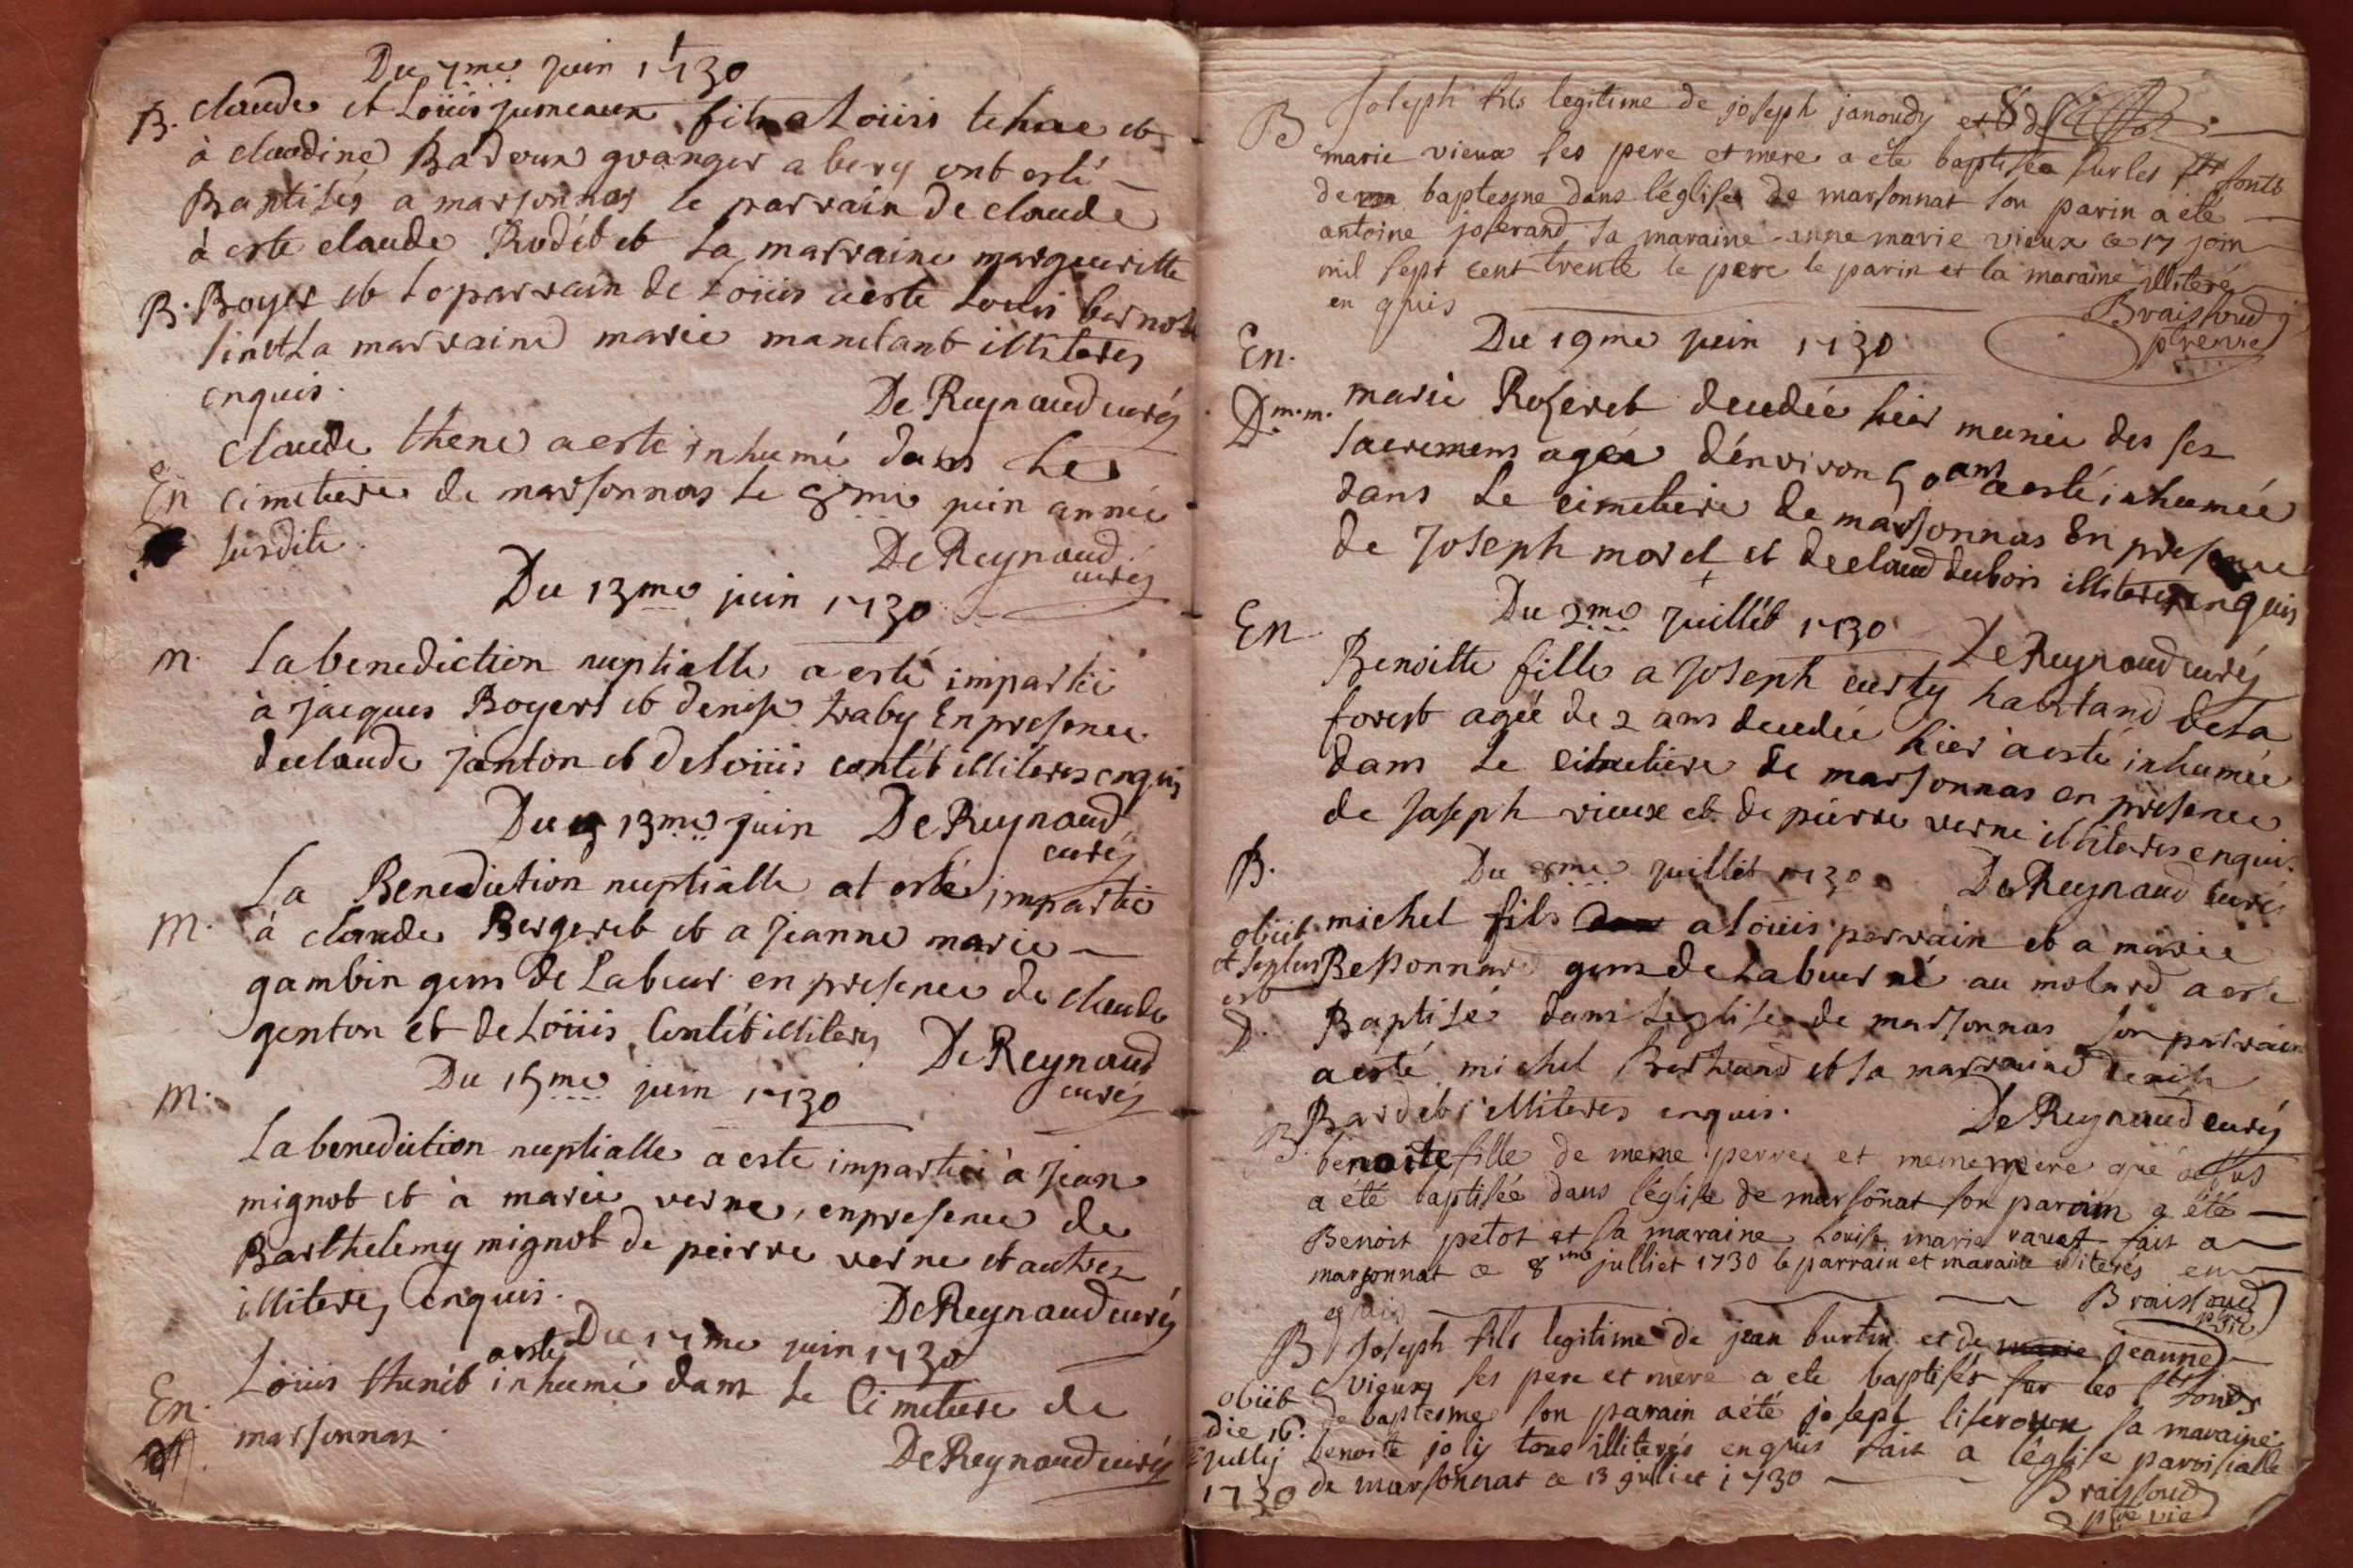 Du 7me juin 1730
B. claude et Loüis jumeaux fils a Loüis tehne et
à claudine Badoux granger a bery ont esté
Baptisés a marsonnas le parrain de claude
à este claude Rodét et La marraine margueritte
B. Boyer et Le parrain de Loüis a este Louis
et La marraine marie illiteres
enquis.
De Reynaud curéz
claude thene a este inhumé dans Le
En cimetiere de marsonnas le 8me juin année
susdite.
De Reynaud
curéz
Du 13me juin 1730
m. La benediction nuptialle a esté impartie
à jacques Boyers et denise traby En presence
de claude janton et de Loüis contét illiteres enquis
Du 13me juin De Reynaud
curéz
La Benediction nuptialle at esté impartie
m. à claude Bergeret et a jeanne marie
gambin gens de Labeur en presence de claude
genton et de Loüis Contét illiteres
De Reynaud
curéz
Du 15me juin 1730
m. La benediction nuptialle a este impartie à jean
mignot et à marie verne, en presence de
Barthelemy mignot de peirre verne et autres
illiteres enquis.
De Reynaud curéz
Du 17me juin 1730
En. Loüis thenét a esté inhumé dans le Cimetiere de
marsonnas.
De Reynaud curéz
B Joseph fils legitime de joseph janoudy et de
marie vieux ses pere et mere a été baptisée sur les sts fonts
de baptesme dans léglise de marsonnat son parin a été
antoine joserand sa maraine anne marie vieux ce 17 join
mil sept cent trente le pere le parin et la maraine illiteré
en quis
Braissoud
En. Du 19me juin 1730
D. m. m. marie Roseret decedée hier munie des ses
sacremens agée dénviron 50 ans a esté inhumée
dans Le cimetiere de marsonnas En presence
de Joseph morel et de claud dubois illiteres enquis
En Du 2me juillét 1730 De Reynaud curéz
Benoitte fille a Joseph curty habitand de La
forest agée de 2 ans decedée hier a esté inhumée
dans Le cimetiere de marsonnas en presence
de Joseph vieux et de pierre verne illiteres enquis.
B. Du 8me juillet 1730 De Reynaud curé
obiit michel fils a Loüis perrain et a marie
gens de Labeur né au molard a este
Baptisé dans Leglise de marsonnas son parrain
a esté michel Bertrand et sa marraine denise
Bardet illiteres enquis.
De Reynaud curéz
B. benoite fille de meme perre et meme mere que
a été baptisée dans léglise de marsoñat son parain a été
Benoit petot et sa maraine Louise marie fait a
marsonnat ce 8me julliet 1730 le parrain et maraine illiterés en
quis
Braissoud
B Joseph fils legitime de jean burtin et de marie jeanne
vieux ses pere et mere a ete baptisés sur les sts fonds
obiit de baptesme son parain a été joseph sa maraine
die 16 benoite joly tous illiterés enquis fait a léglise paroisialle
jullij de marsoñnat ce 13 julliet 1730
1730
Braissoud
ptre vic